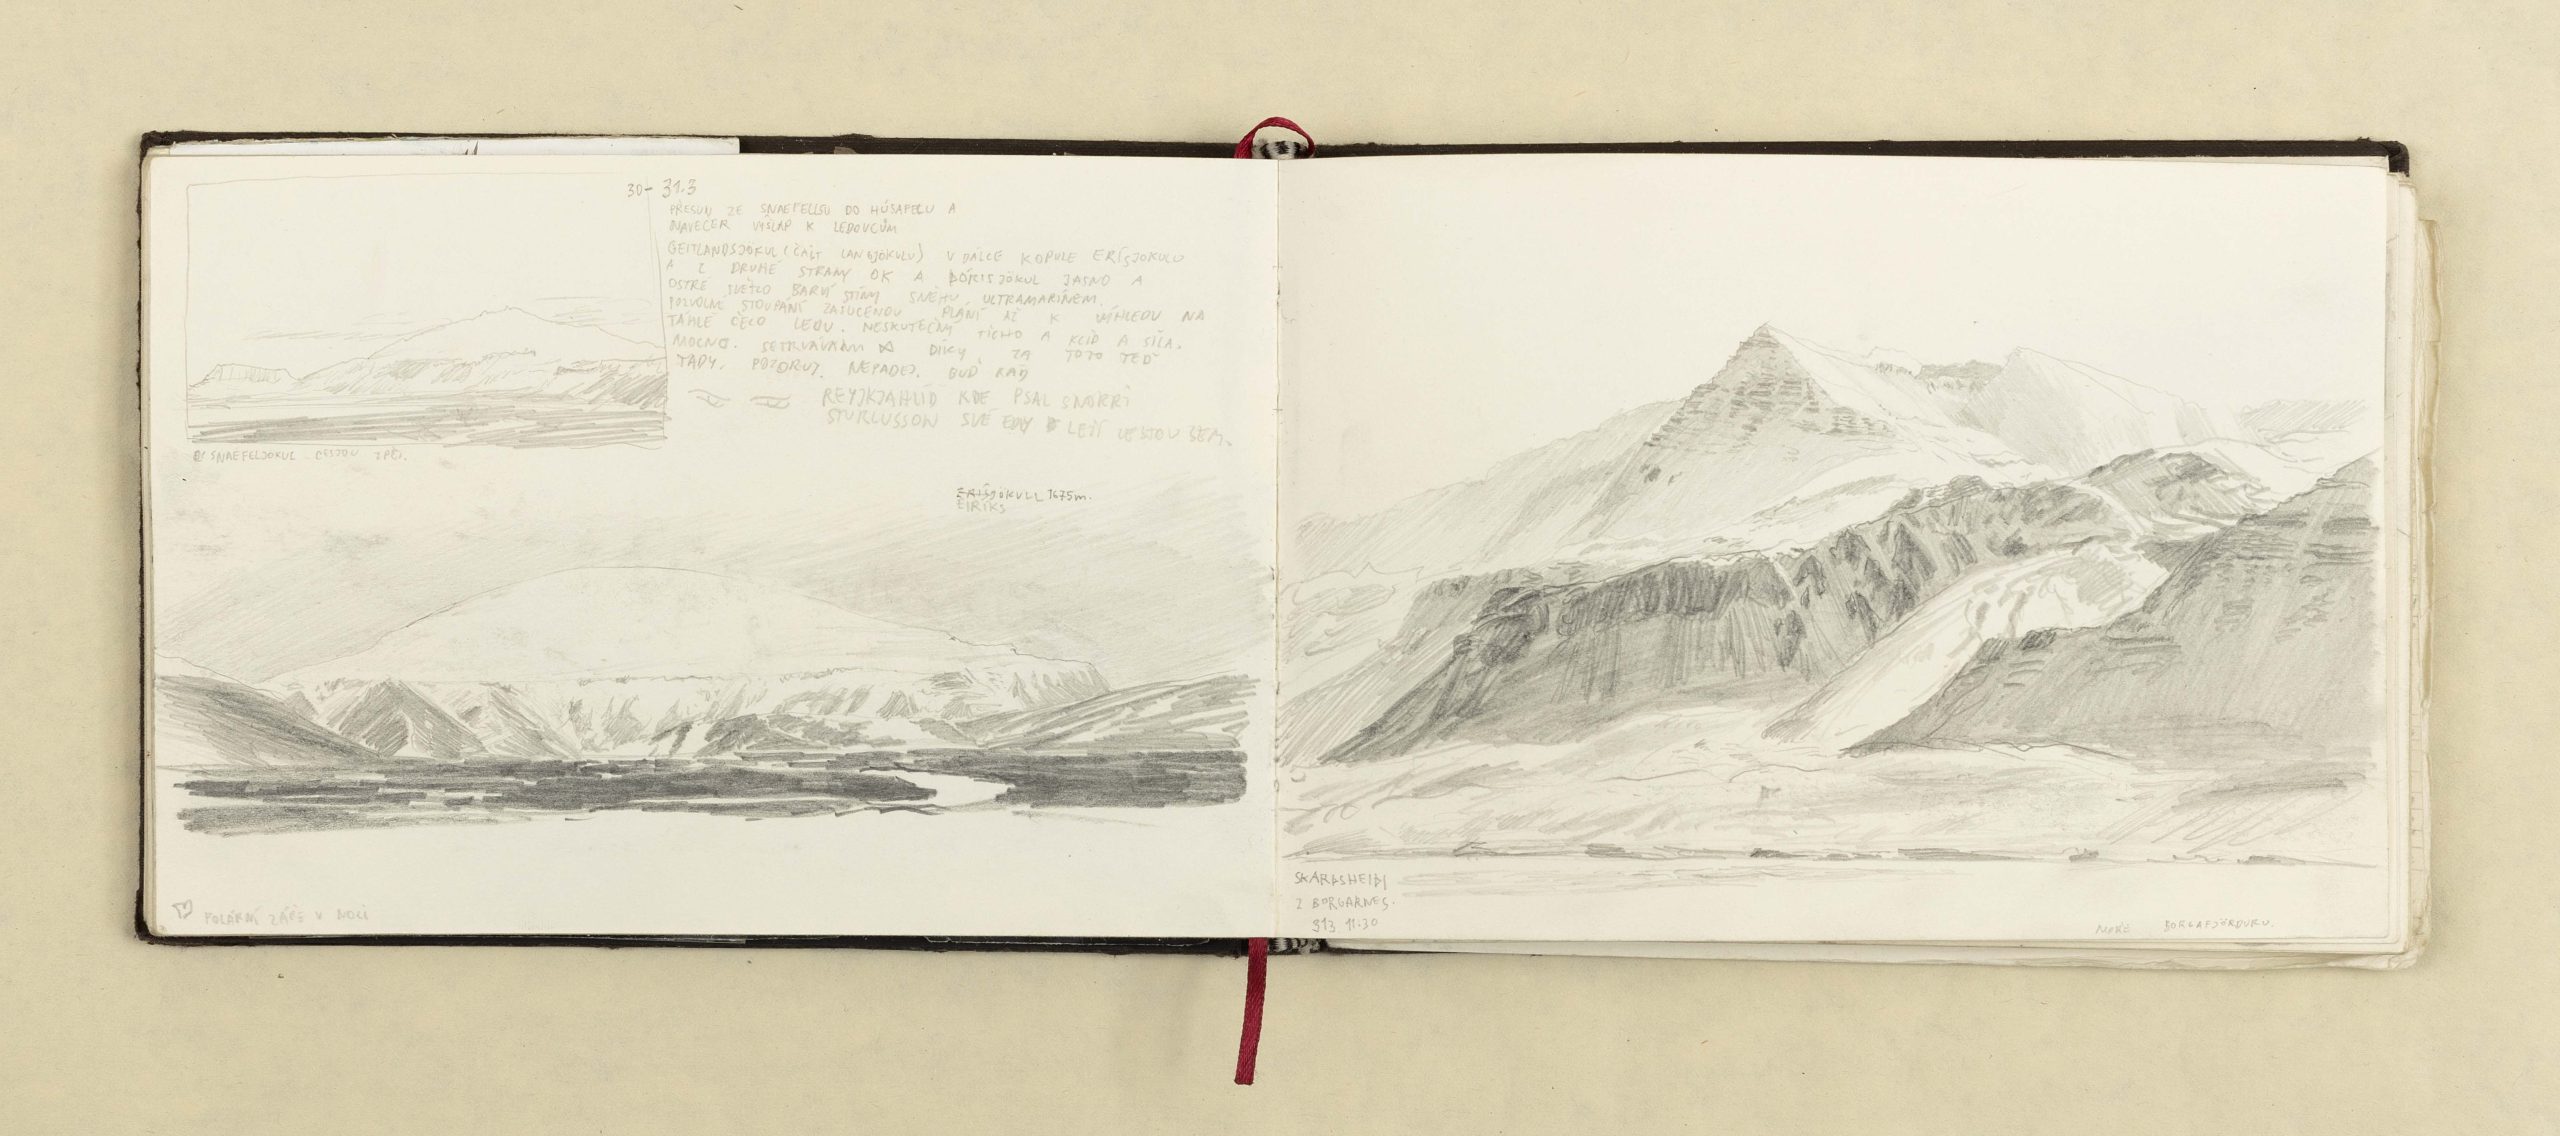 30-31.3
PŘESUN ZE SNAEFELLSU DO HÚSAFELU A
NAVEČER VÝŠLAP K LEDOVCŮM
GEITLANDSJÖKUL (ČÁST LANGJÖKULU) V DÁLCE KOPULE ERÍSJOKULU
A Z DRUHÉ STRANY OK A ÞÓRISJÖKUL JASNO A
OSTRÉ SVĚTLO BARVÍ STÍNY SNĚHU ULTRAMARÍNEM.
POZVOLNÉ STOUPÁNÍ ZASUCENOU PLÁNÍ AŽ K VÝHLEDU NA
TÁHLÉ ČELO LEDU. NESKUTEČNÝ TICHO A KLID A SÍLA.
MOCNO. SETRVÁVÁM DÍKY ZA TOTO TEĎ
TADY. POZORUJ. NEPADEJ. BUĎ RÁD
REYJKJAHLÍD KDE PSAL SNORRI
STURLUSSON SVÉ EDDY LEŽÍ CESTOU SEM.
SNAEFELJÖKUL CESTOU ZPĚT.
ERÍSJÖKULL 1675m.
EIRÍKS
POLÁRNÍ ZÁŘE V NOCI
SKARÐSHEIÐI
Z BORGARNES.
313. 11.30
MOŘE BORGAFJÖRDURU.